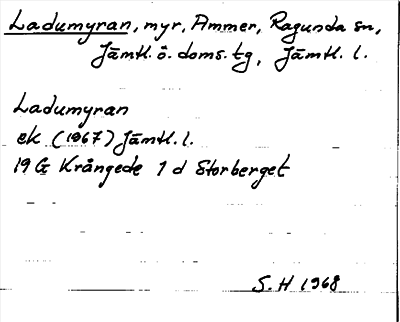 Ladumyran, myr, Ammer, Ragunda sn,
Jämtl. ö. doms. tg, Jämtl. l.
Ladumyran
ek (1967) Jämtl. l.
19 G Krångede 1 d Storberget
S. H 1968